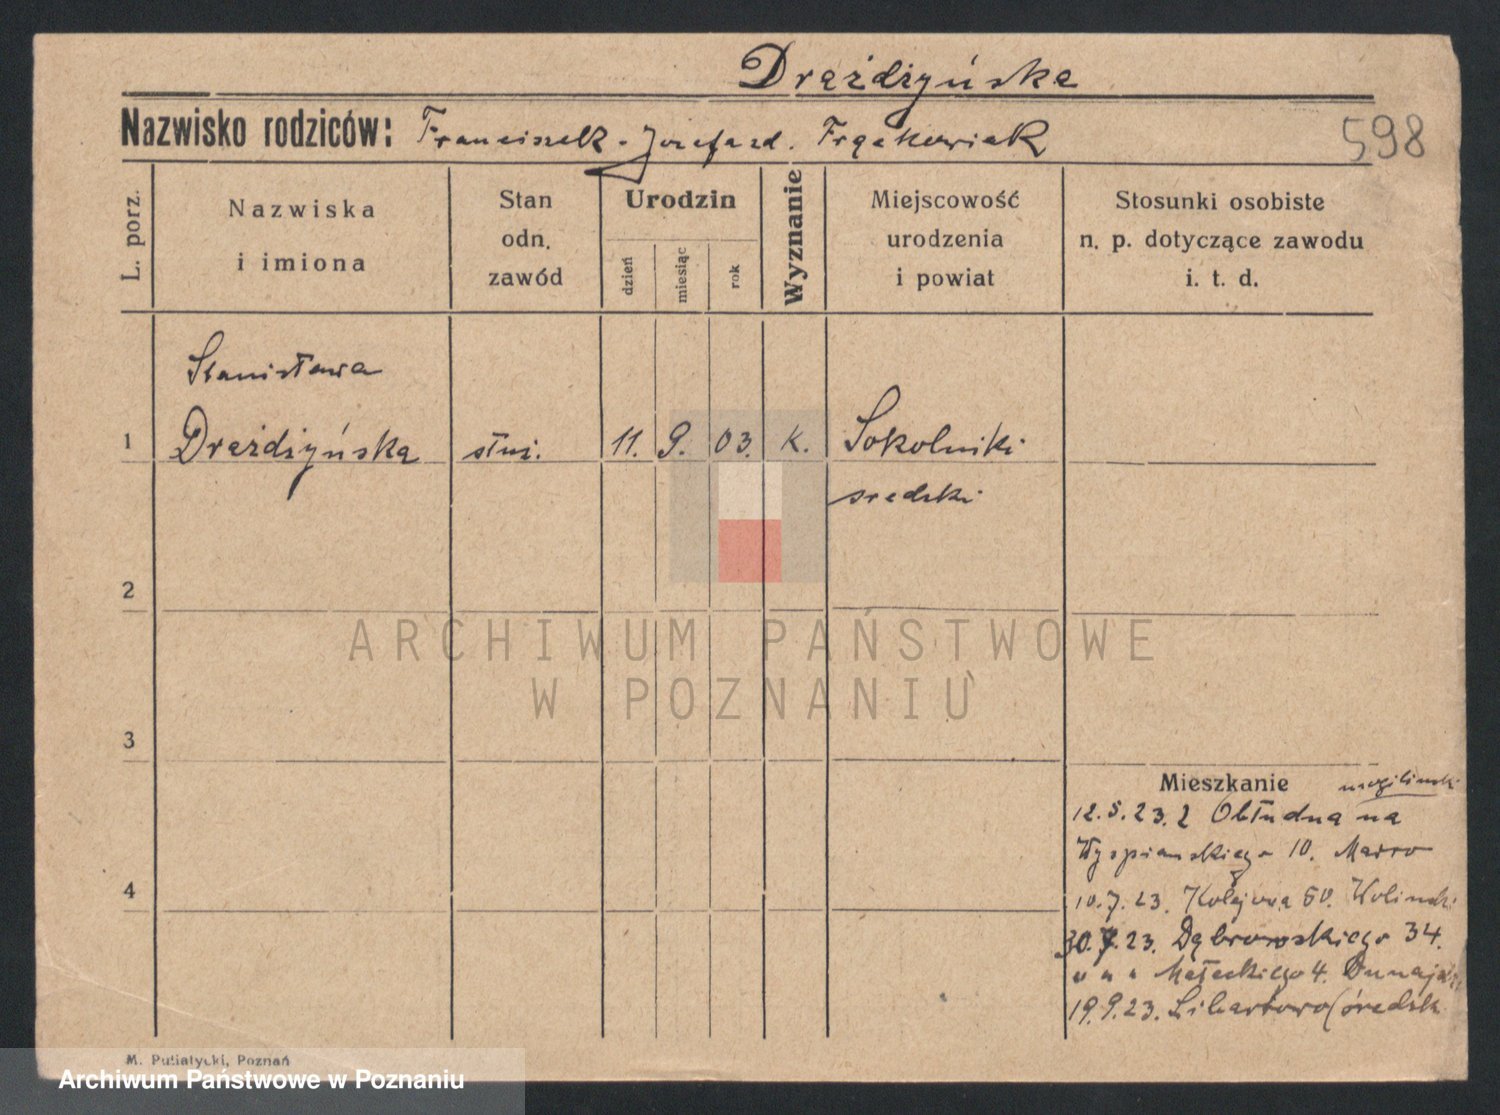 Drążdżyńska
Nazwisko rodziców: Franciszek - Józefa zd. Frąckowiak
598
L. porz.
Nazwiska
i imiona
Stan
odn.
zawód
Urodzin
dzień
miesiąc
rok
Wyznanie
Miejscowość
urodzenia
i powiat
Stosunki osobiste
n. p. dotyczące zawodu
i. t. d.
Stanisława
1 Drążdżyńska służ. 11. 9. 03. k. Sokolniki
średzki
2
ARCHIWUM PAŃSTWOWE
W POZNANIU
3
Mieszkanie mogilinski
12.5.23. z Obłudna na
Wyspiańskiego 10.
10.7.23. Kolejowa 50. Wolinski
30.7.23. Dąbrowskiego 34.
Małeckiego 4. Dunaj
19.9.23. Libartowo (średzk
4
M. Putiatycki, Poznań
Archiwum Państwowe w Poznaniu